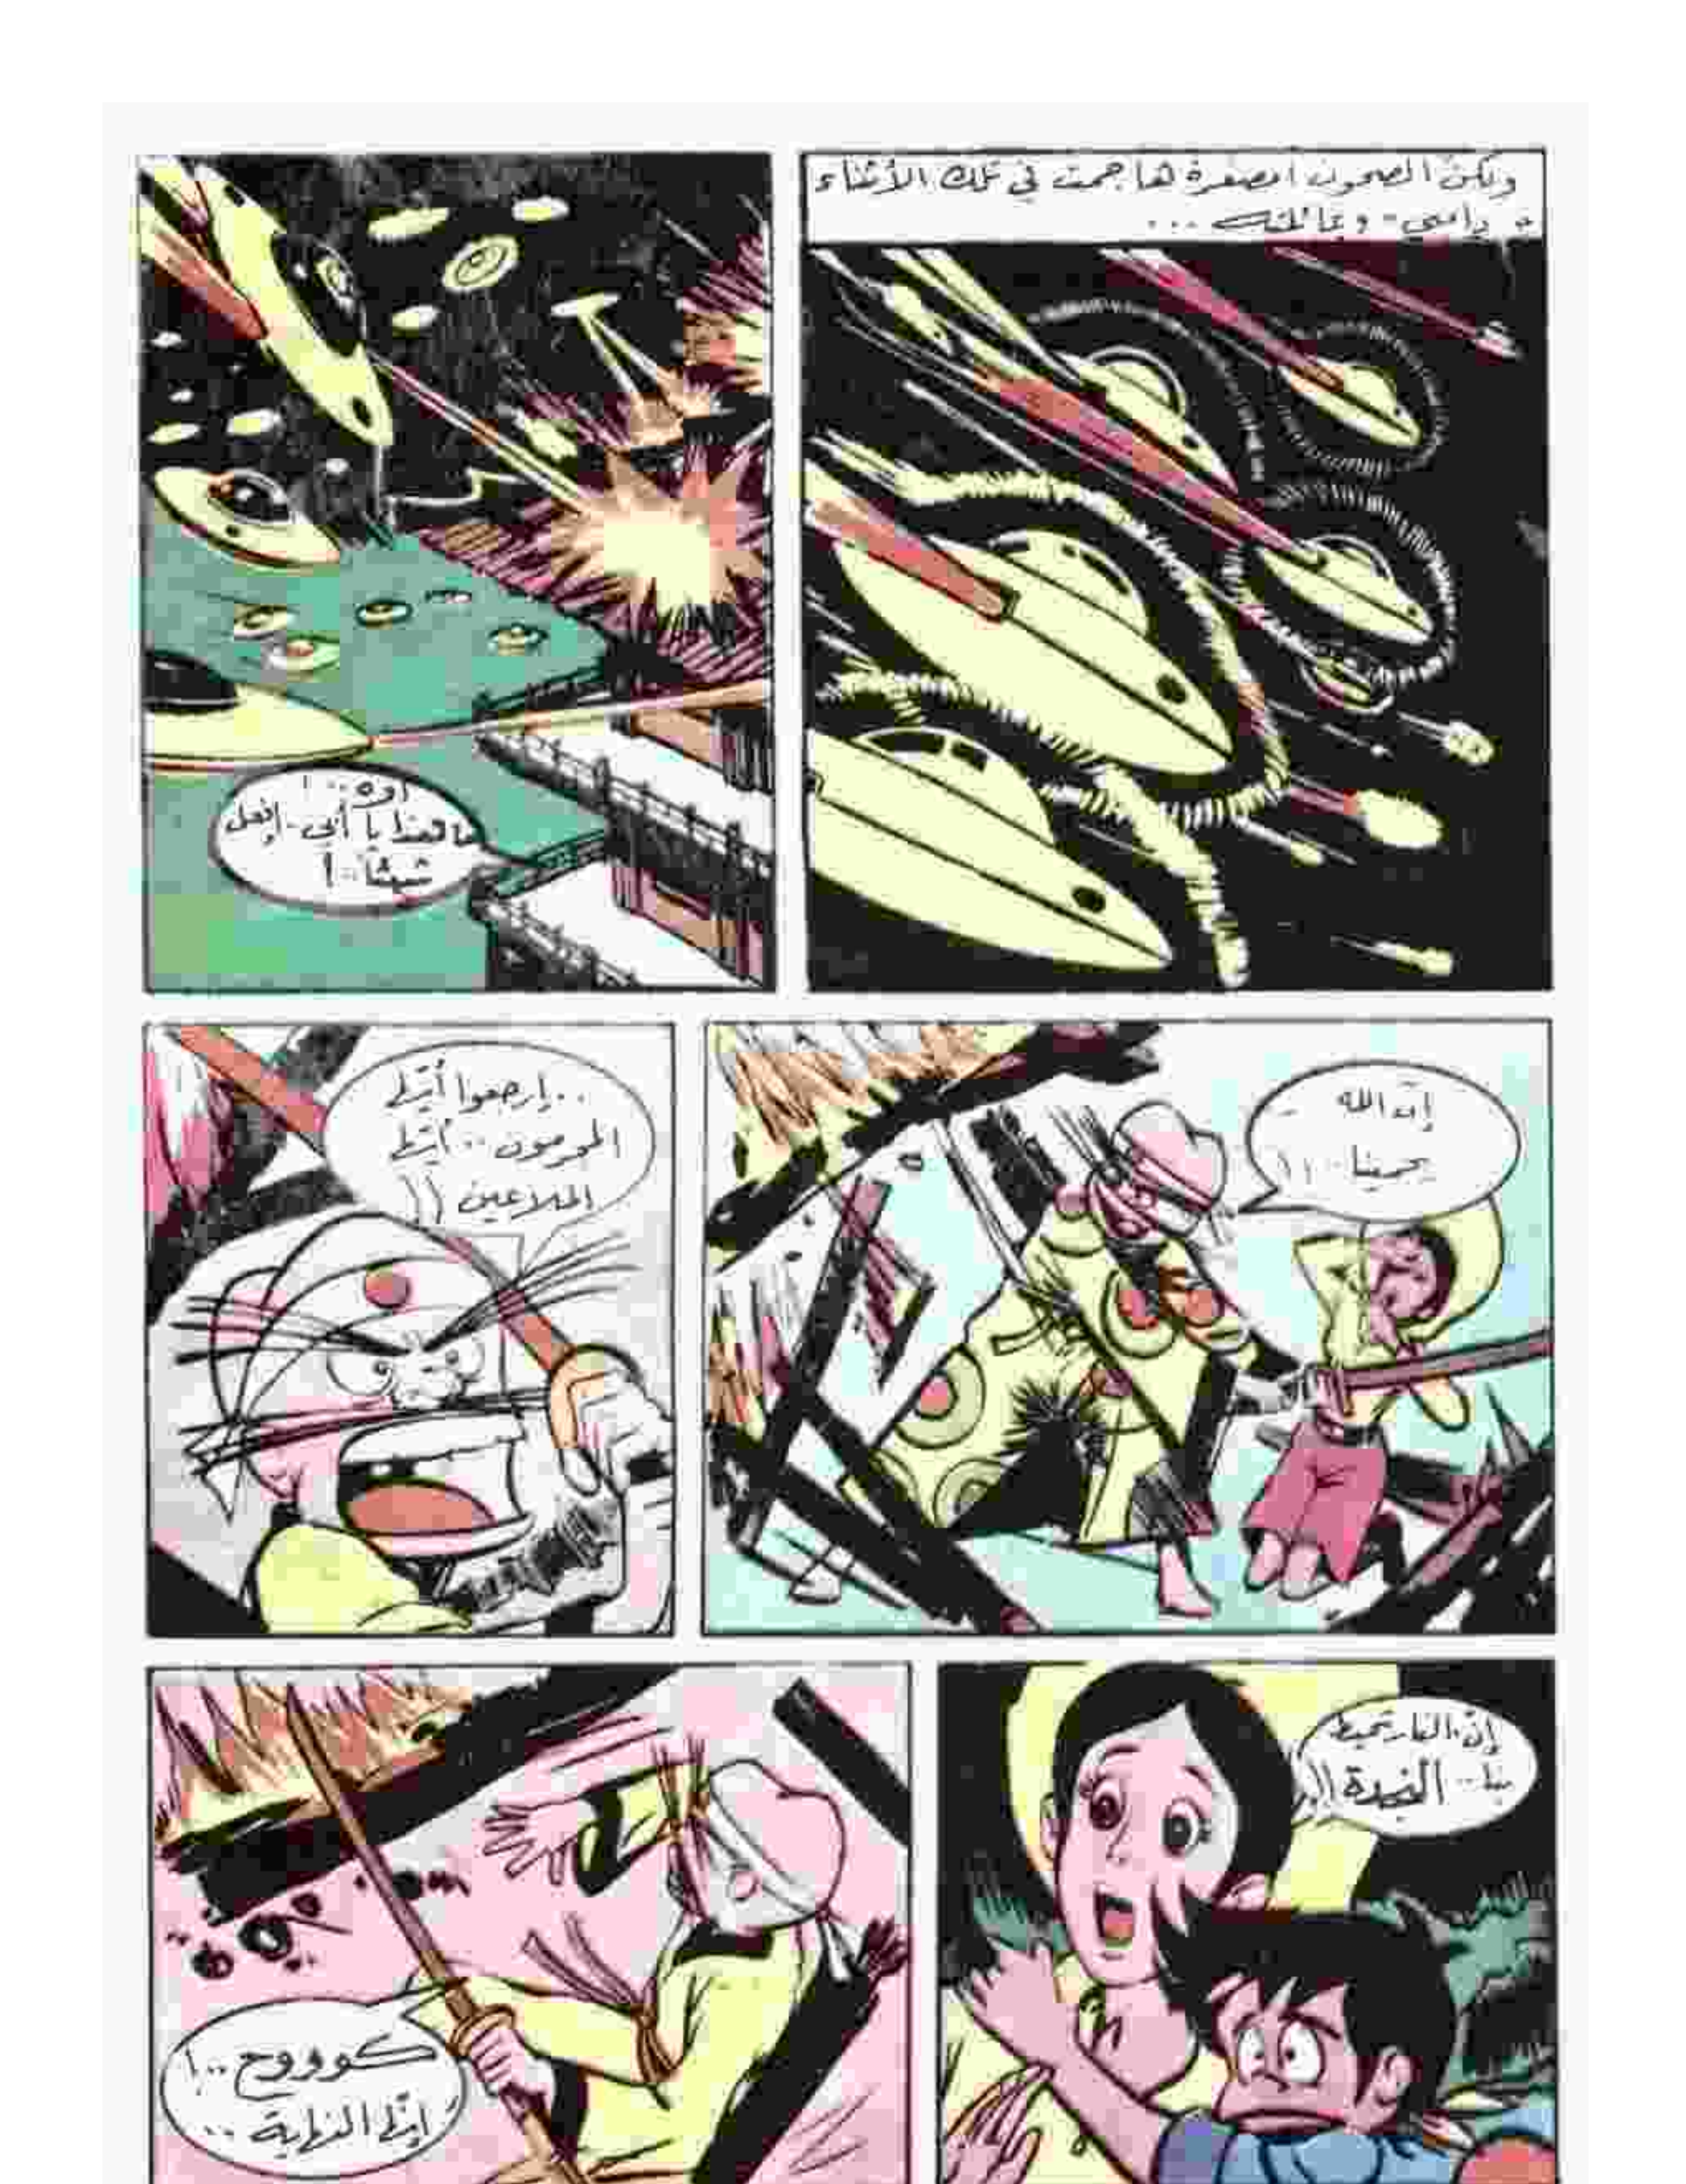 ولكنّ الصحون المصغرة هاجمت في تلك الأثناء
"دامبي" وعائلته ...
اوه..!
ما هذا يا أبي.. إفعل
شيئاً..!
إنّ الله
يحمينا..!!
..إرجعوا أيّها
المجرمون.. أيّها
الملاعين!!
إنّ النار تحيط
بنا.. النجدة!!
كوووح..!
إنّها النهاية..